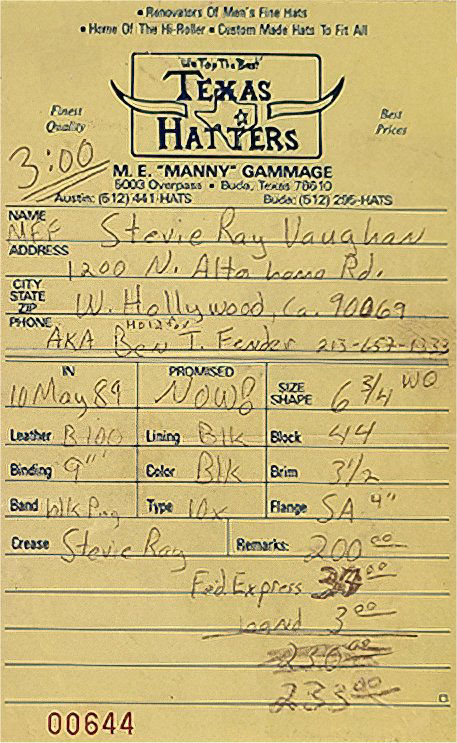 • Renovators Of Men's Fine Hats
• Home Of The Hi-Roller • Custom Made Hats To Fit All
"We Top The Best"
TEXAS
HATTERS
Finest Quality
Best Prices
3:00
M. E. "MANNY" GAMMAGE
5003 Overpass • Buda, Texas 78610
Austin: (512) 441-HATS Buda: (512) 295-HATS
NAME Stevie Ray Vaughan
ADDRESS 1200 N. Alta Loma Rd.
CITY STATE ZIP W. Hollywood, Ca. 90069
Hold for
PHONE AKA Ben T. Fender 213-657-1333
IN 10 May 89 PROMISED NOW! SIZE SHAPE 6 3/4 WO
Leather B100 Lining Blk Block 44
Binding 9" Color Blk Brim 3 1/2
Band Type 10x Flange SA 4"
Crease Stevie Ray Remarks: 200.00
Fed. Express 00
3.00
230.00
233.00
00644